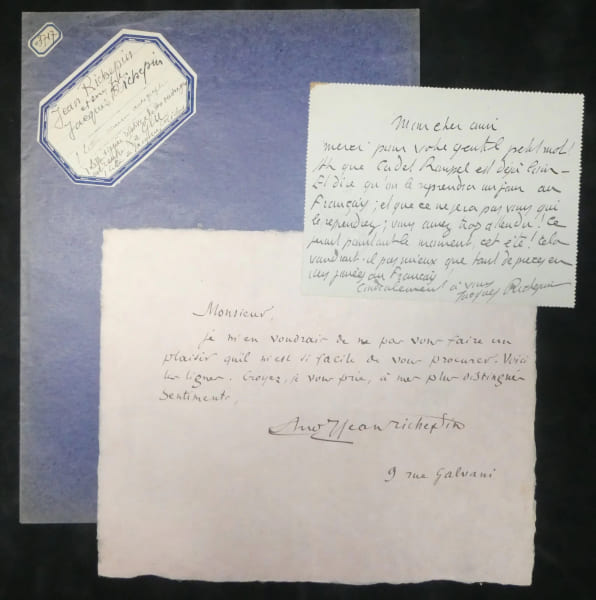 Jean Richepin
et son fils
Jacques Richepin
Mon cher ami
merci pour votre gentil petit mot!
Ah que Cadet Roussel est déjà loin –
Et dire qu'on le reprendra un jour au
Français; et que ce ne sera pas vous qui
le reprendrez; vous aurez trop attendu! Ce
serait pourtant le moment, cet été! Cela
vaudrait-il pas mieux que tant de pièces en
au Français!
Cordialement à vous
Jacques Richepin
Monsieur,
je m'en voudrais de ne pas vous faire un
plaisir qu'il m'est si facile de vous procurer. Voici
les lignes. Croyez, je vous prie, à mes plus distingués
sentiments,
Jean Richepin
9 rue Galvani